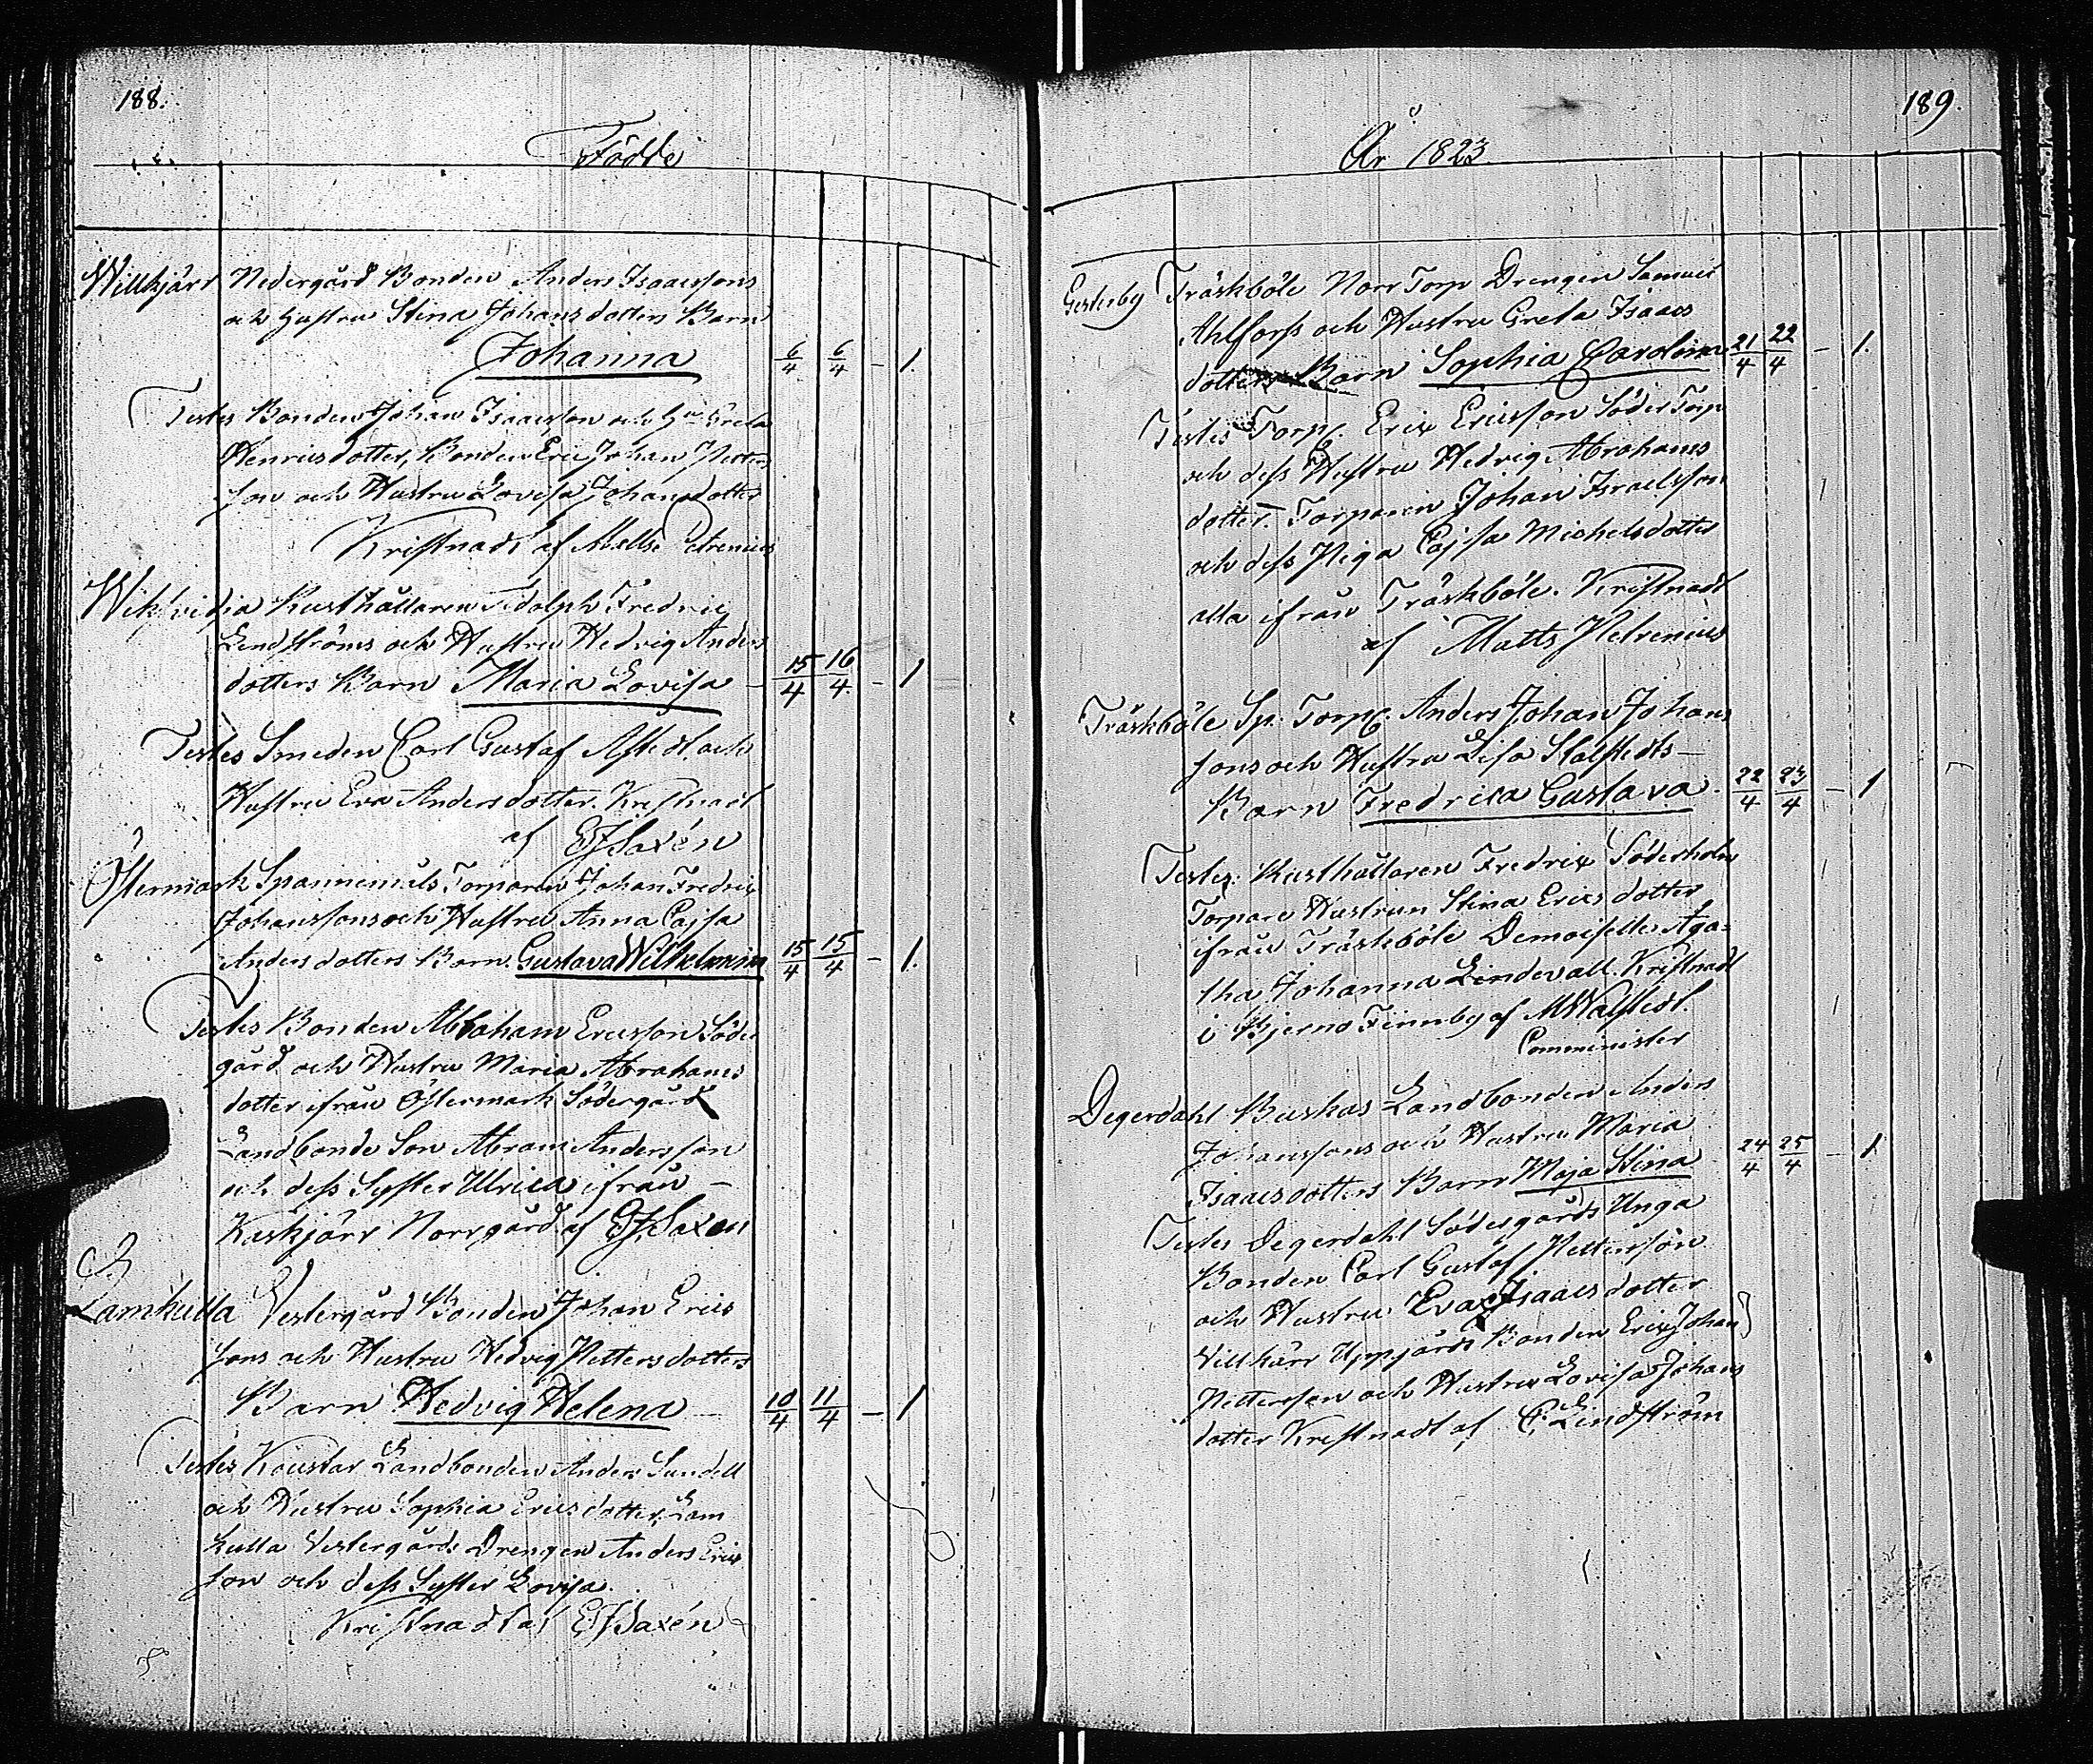 188.
Födde
Willkjärr Nedergård Bonden Anders Isaacssons
och Hustru Stina Johansdotters Barn
Johanna 6/4 6/4 – 1.
Testes Bonden Johan Isaacsson och Hu Greta
Henricsdotter, Bonden Eric Johan Petters
son och Hustru Lovisa Johansdotter
Kristnadt af Matts Petrenius
Rusthållaren Adolph Fredric
Lindströms och Hustru Hedvig Anders
dotters Barn Maria Lovisa – 15/4 16/4 – 1
Testes Smeden Carl Gustaf och
Hustru Eva Andersdotter. Kristnadt
af EJSaxén
Östermark Spannemåls Torparen Johan Fredric
Johanssons och Hustru Anna Cajsa
Andersdotters Barn. Gustava Wilhelmina 15/4 15/4 – 1.
Testes Bonden Abraham Ericsson Söder
gård och Hustru Maria Abrahams
dotter ifrån Östermark Södergård
Landbonde Son Abram Andersson
och dess Syster Ulrica ifrån –
Kaskjärr Norrgård af EJSaxen
Lamkulla Vestergård Bonden Johan Erics
sons och Hustru Hedvig Pettersdotters
Barn Hedvig Helena 10/4 11/4 – 1
Testes Landbonden Anders Sundell
och Hustru Sophia Ericsdotter, Lam
kulla Vestergårds Drengen Anders Eric
son och dess Syster Lovisa.
Kristnadt af EJSaxén
189.
År 1823.
Gesterby Träskböle Norr Torp Drengen Samuel
Ahlforss och Hustru Greta Isaacs
dotters Barn Sophia Carolina 21/4 22/4 – 1.
Testes Torp. Eric Ericsson Söder Torp
och dess Hustru Hedvig Abrahams
dotter. Torparen Johan Israelsson
och dess Piga Cajsa Michelsdotter
alla ifrån Träskböle. Kristnadt
af Matts Petrenius
Träskböle Sp. Torp. Anders Johan Johans
sons och Hustru Lisa Stålstedts –
Barn Fredrica Gustava. 22/4 23/4 – 1
Testes: Rusthållaren Fredric Söderholm
Torpare Hustrun Stina Ericsdotter
ifrån Träskböle Demoiselle Aga=
tha Johanna Lindevall. Kristnadt
i Bjerno Finnby af MWalstedt.
Comminister
Degerdahl Buskas Landbonden Anders
Johanssons och Hustru Maria
Isaacsdotters Barn Maja Stina 24/4 25/4 – 1
Testes Degerdahl Södergårds Unga
Bonden Carl Gustaf Pettersson
och Hustru Eva Isaacsdotter
Villkärr Uppgårds Bonden Eric Johan
Pettersson och Hustru Lovisa Johans
dotter Kristnadt af C. Lindström